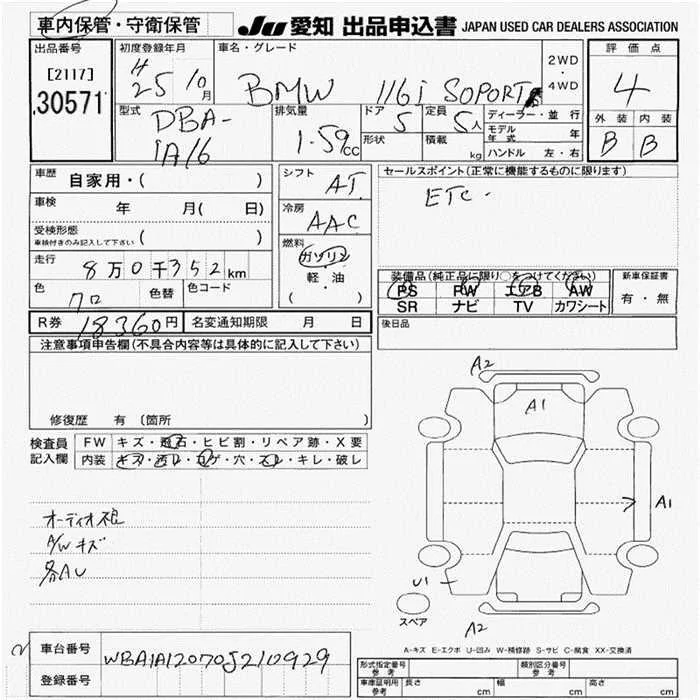 車内保管・守衛保管
JU 愛知 出品申込書 JAPAN USED CAR DEALERS ASSOCIATION
出品番号
[2117]
30571
初度登録年月
H
25 10月
車名・グレード
BMW 116i SOPORT
2WD
・
4WD
評価点
4
外装 内装
B B
型式
DBA-
1A16
排気量
1.59cc
ドア 5
形状
定員 5人
積載 kg
ディーラー・並行
モデル年式 年
ハンドル 左・右
車歴 自家用・( )
車検 年 月( 日)
受検形態
車検付きのみ記入して下さい ( )
走行 8万0千352km
色 クロ 色替 色コード
R券 18360円 名変通知期限 月 日
シフト AT
冷房 AAC
燃料
ガソリン
軽・油
( )
セールスポイント(正常に機能するものに限ります)
ETC.
装備品(純正品に限り○をつけてください)
PS PW エアB AW
SR ナビ TV カワシート
新車保証書
有・無
後日品
注意事項申告欄(不具合内容等は具体的に記入して下さい)
修復歴 有 〔箇所
検査員
記入欄
FW キズ・飛石・ヒビ割・リペア跡・X要
内装 キズ・汚レ・コゲ・穴・スレ・キレ・破レ
A/Wキズ
各AU
A2
A1
A1
U1
A2
スペア
A-キズ E-エクボ U-凹み W-補修跡 S-サビ C-腐食 XX-交換済
車台番号 WBA1A12070J210929
登録番号
形式指定番号
参考
類別区分番号
参考
車庫証明用
参考
長さ cm 幅 cm 高さ cm